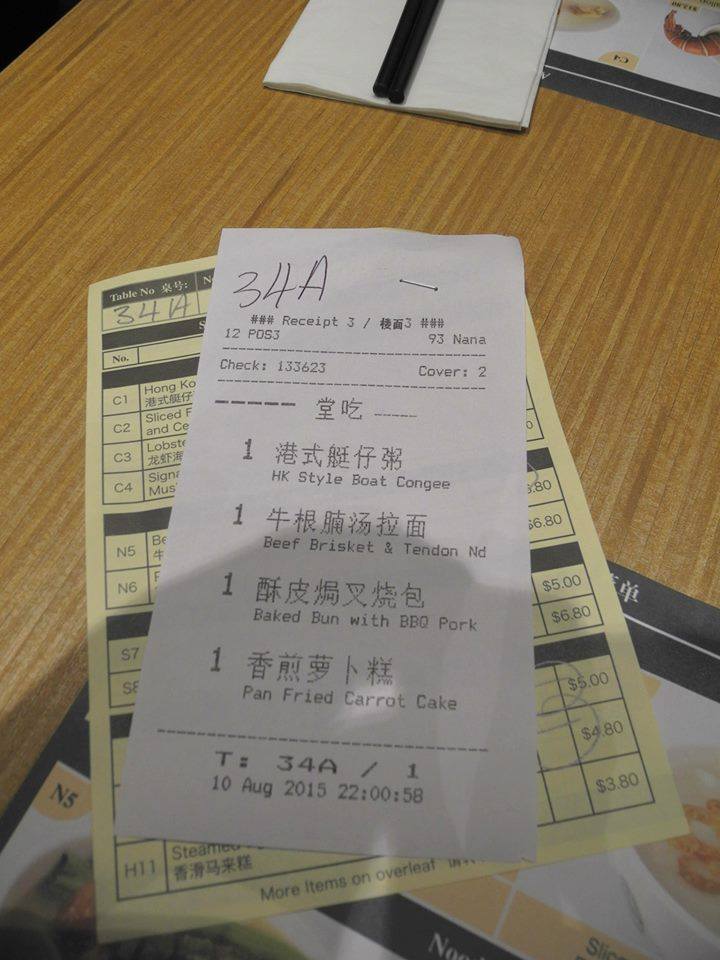 34A
### Receipt 3 / 楼面3 ###
12 POS3 93 Nana
Check: 133623 Cover: 2
----- 堂吃 -----
1 港式艇仔粥
HK Style Boat Congee
1 牛根腩汤拉面
Beef Brisket & Tendon Nd
1 酥皮焗叉烧包
Baked Bun with BBQ Pork
1 香煎萝卜糕
Pan Fried Carrot Cake
T: 34A / 1
10 Aug 2015 22:00:58
Table No 桌号:
34A
No.
C1 Hong Ko
港式艇仔
C2 Sliced
and Ce
C3 Lobste
龙虾海
C4 Signa
Mus
N5 Be
牛
N6
S7
S8
H11 Steamed
香滑马来糕
.80
$6.80
$5.00
$6.80
$5.00
$4.80
$3.80
More Items on overleaf
N5
单
C4